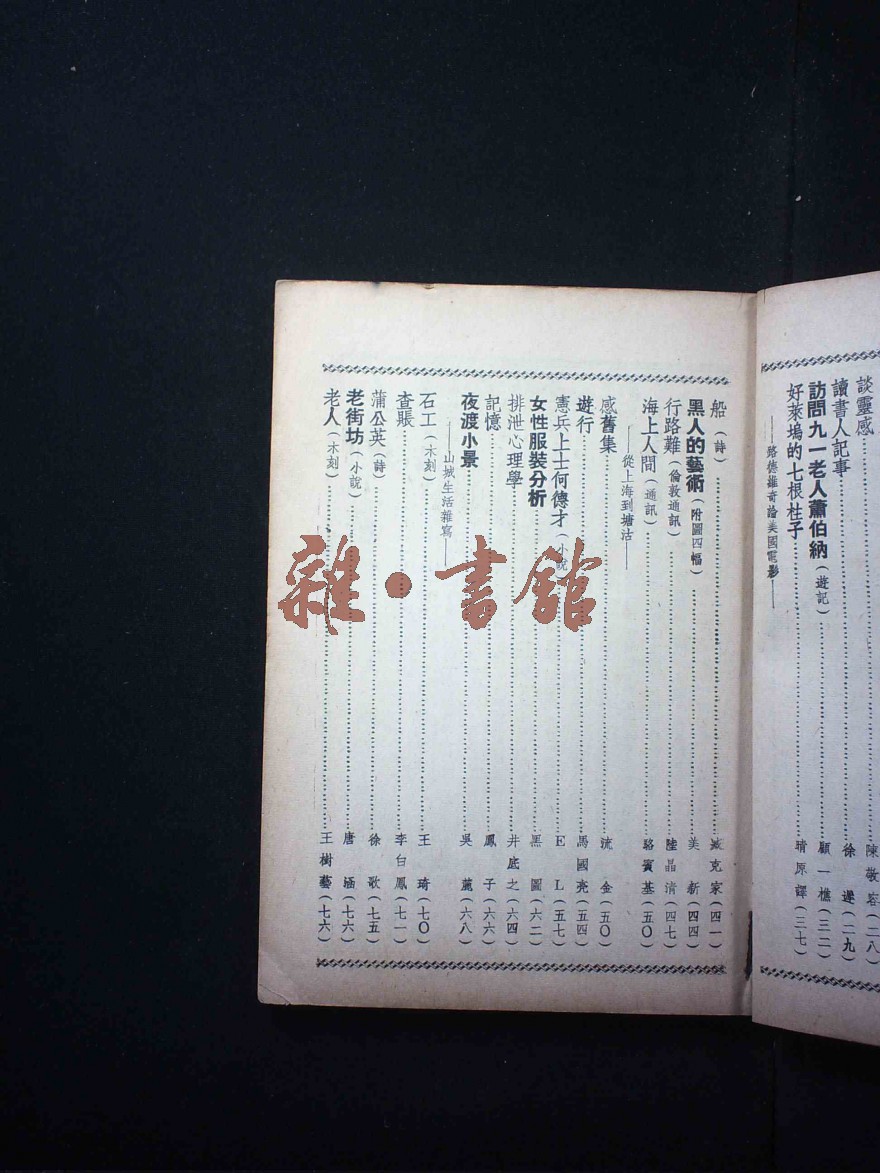 談靈感……陳敬容(二八)
讀書人記事……徐遲(二九)
訪問九一老人蕭伯納(遊記)……顧一樵(三二)
好萊塢的七根柱子……晴原譯(三七)
——路德維奇論美國電影——
船(詩)……臧克家(四一)
黑人的藝術(附圖四幅)……美新(四四)
行路難(倫敦通訊)……陸晶清(四七)
海上人間(通訊)……駱賓基(五〇)
——從上海到塘沽——
感舊集……流金(五〇)
遊行……馬國亮(五四)
憲兵上士何德才(小說)……E L(五七)
女性服裝分析……黑圖(六二)
排泄心理學……井底之(六四)
記憶……鳳子(六六)
夜渡小景……吳薑(六八)
——山城生活雜寫——
石工(木刻)……王琦(七〇)
查賬……李白鳳(七一)
蒲公英(詩)……徐歌(七五)
老街坊(小說)……唐湮(七六)
老人(木刻)……王樹藝(七六)
雜·書館